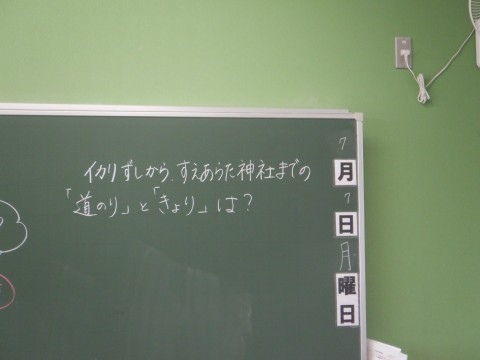 イカリずしから、すえあらた神社までの
「道のり」と「きょり」は？
7
月
7
日
月
曜
日